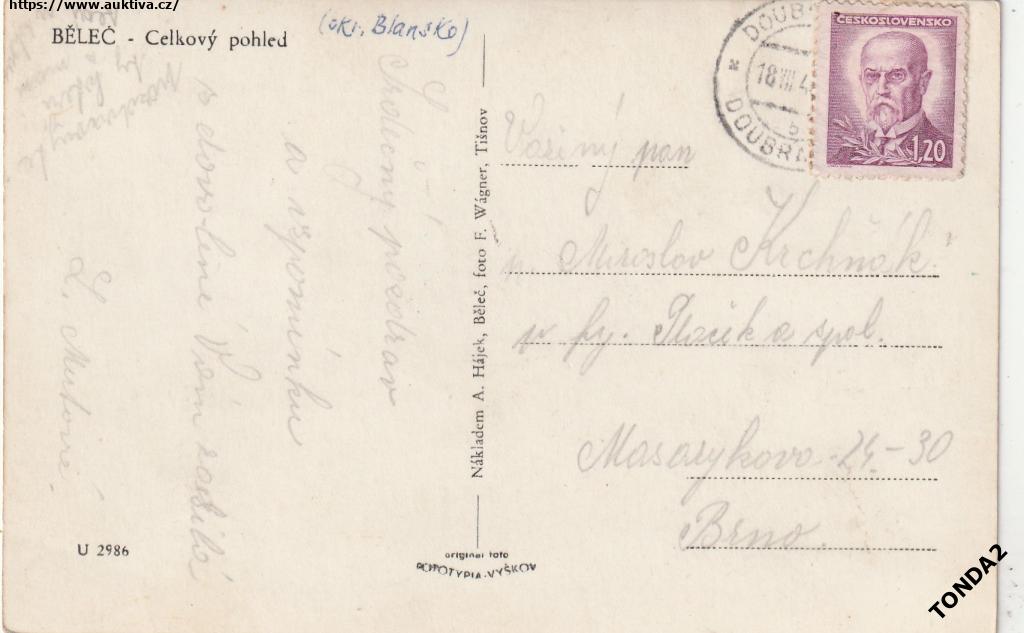 https://www.auktiva.cz/
BĚLEČ - Celkový pohled
(okr. Blansko)
Srdečný pozdrav
a vzpomínku
z dovolené Vám zasílá
L.
U 2986
Nákladem A. Hájek, Běleč, foto F. Wágner, Tišnov
original foto
FOTOTYPIA-VYŠKOV
DOUBR
18 VIII 4
b
DOUBR
ČESKOSLOVENSKO
1,20
Vážený pan
p. Miroslav Krchňák
a spol.
Masarykova 24-30
Brno.
TONDA2